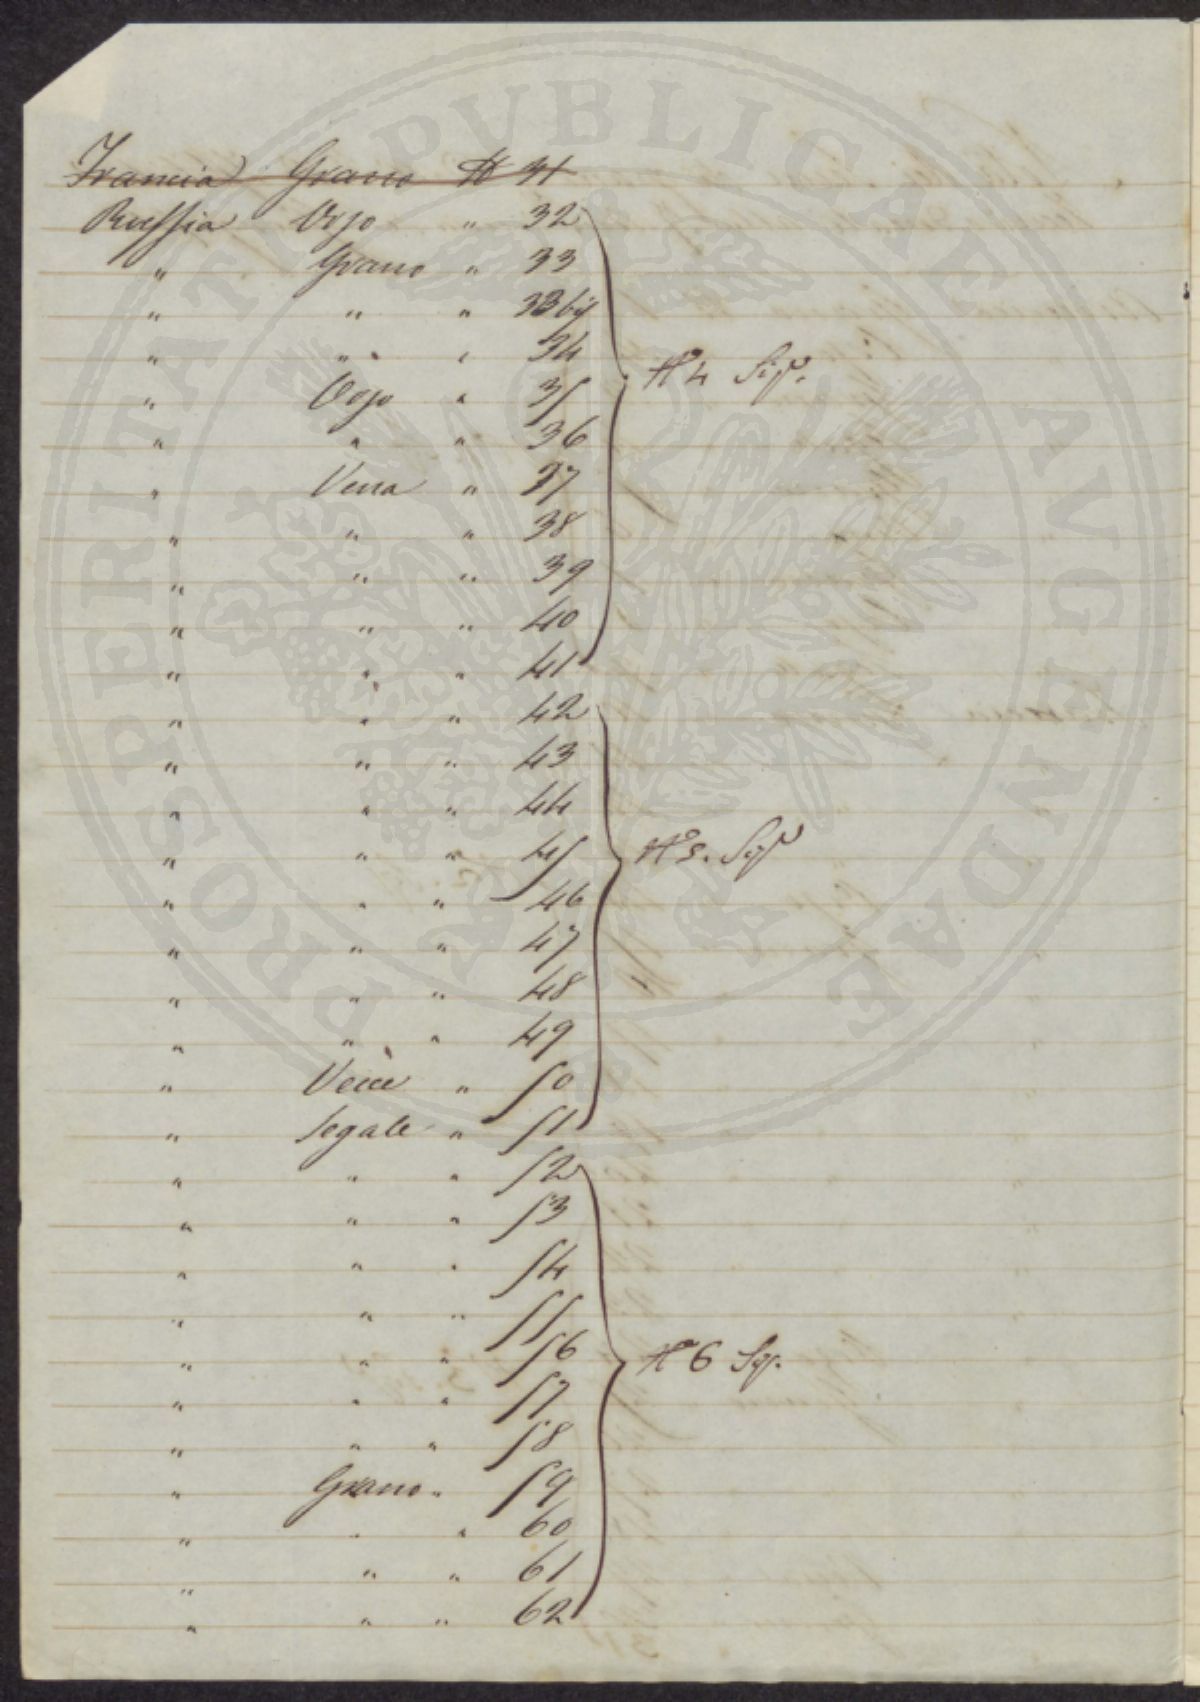 Francia Grano N 31
Russia Orzo " 32
" Grano " 33
" " " 33 bis
" " " 34 N° 4 Sig.
" Orzo " 35
" " " 36
" Vena " 37
" " " 38
" " " 39
" " " 40
" " " 41
" " " 42
" " " 43
" " " 44
" " " 45 N° 5. Sig.
" " " 46
" " " 47
" " " 48
" " " 49
" Vecie " 50
" Segale " 51
" " " 52
" " " 53
" " " 54
" " " 55
" " " 56 N° 6 Sig.
" " " 57
" " " 58
" Grano " 59
" " " 60
" " " 61
" " " 62
PROSPERITATI PUBLICAE AUGENDAE